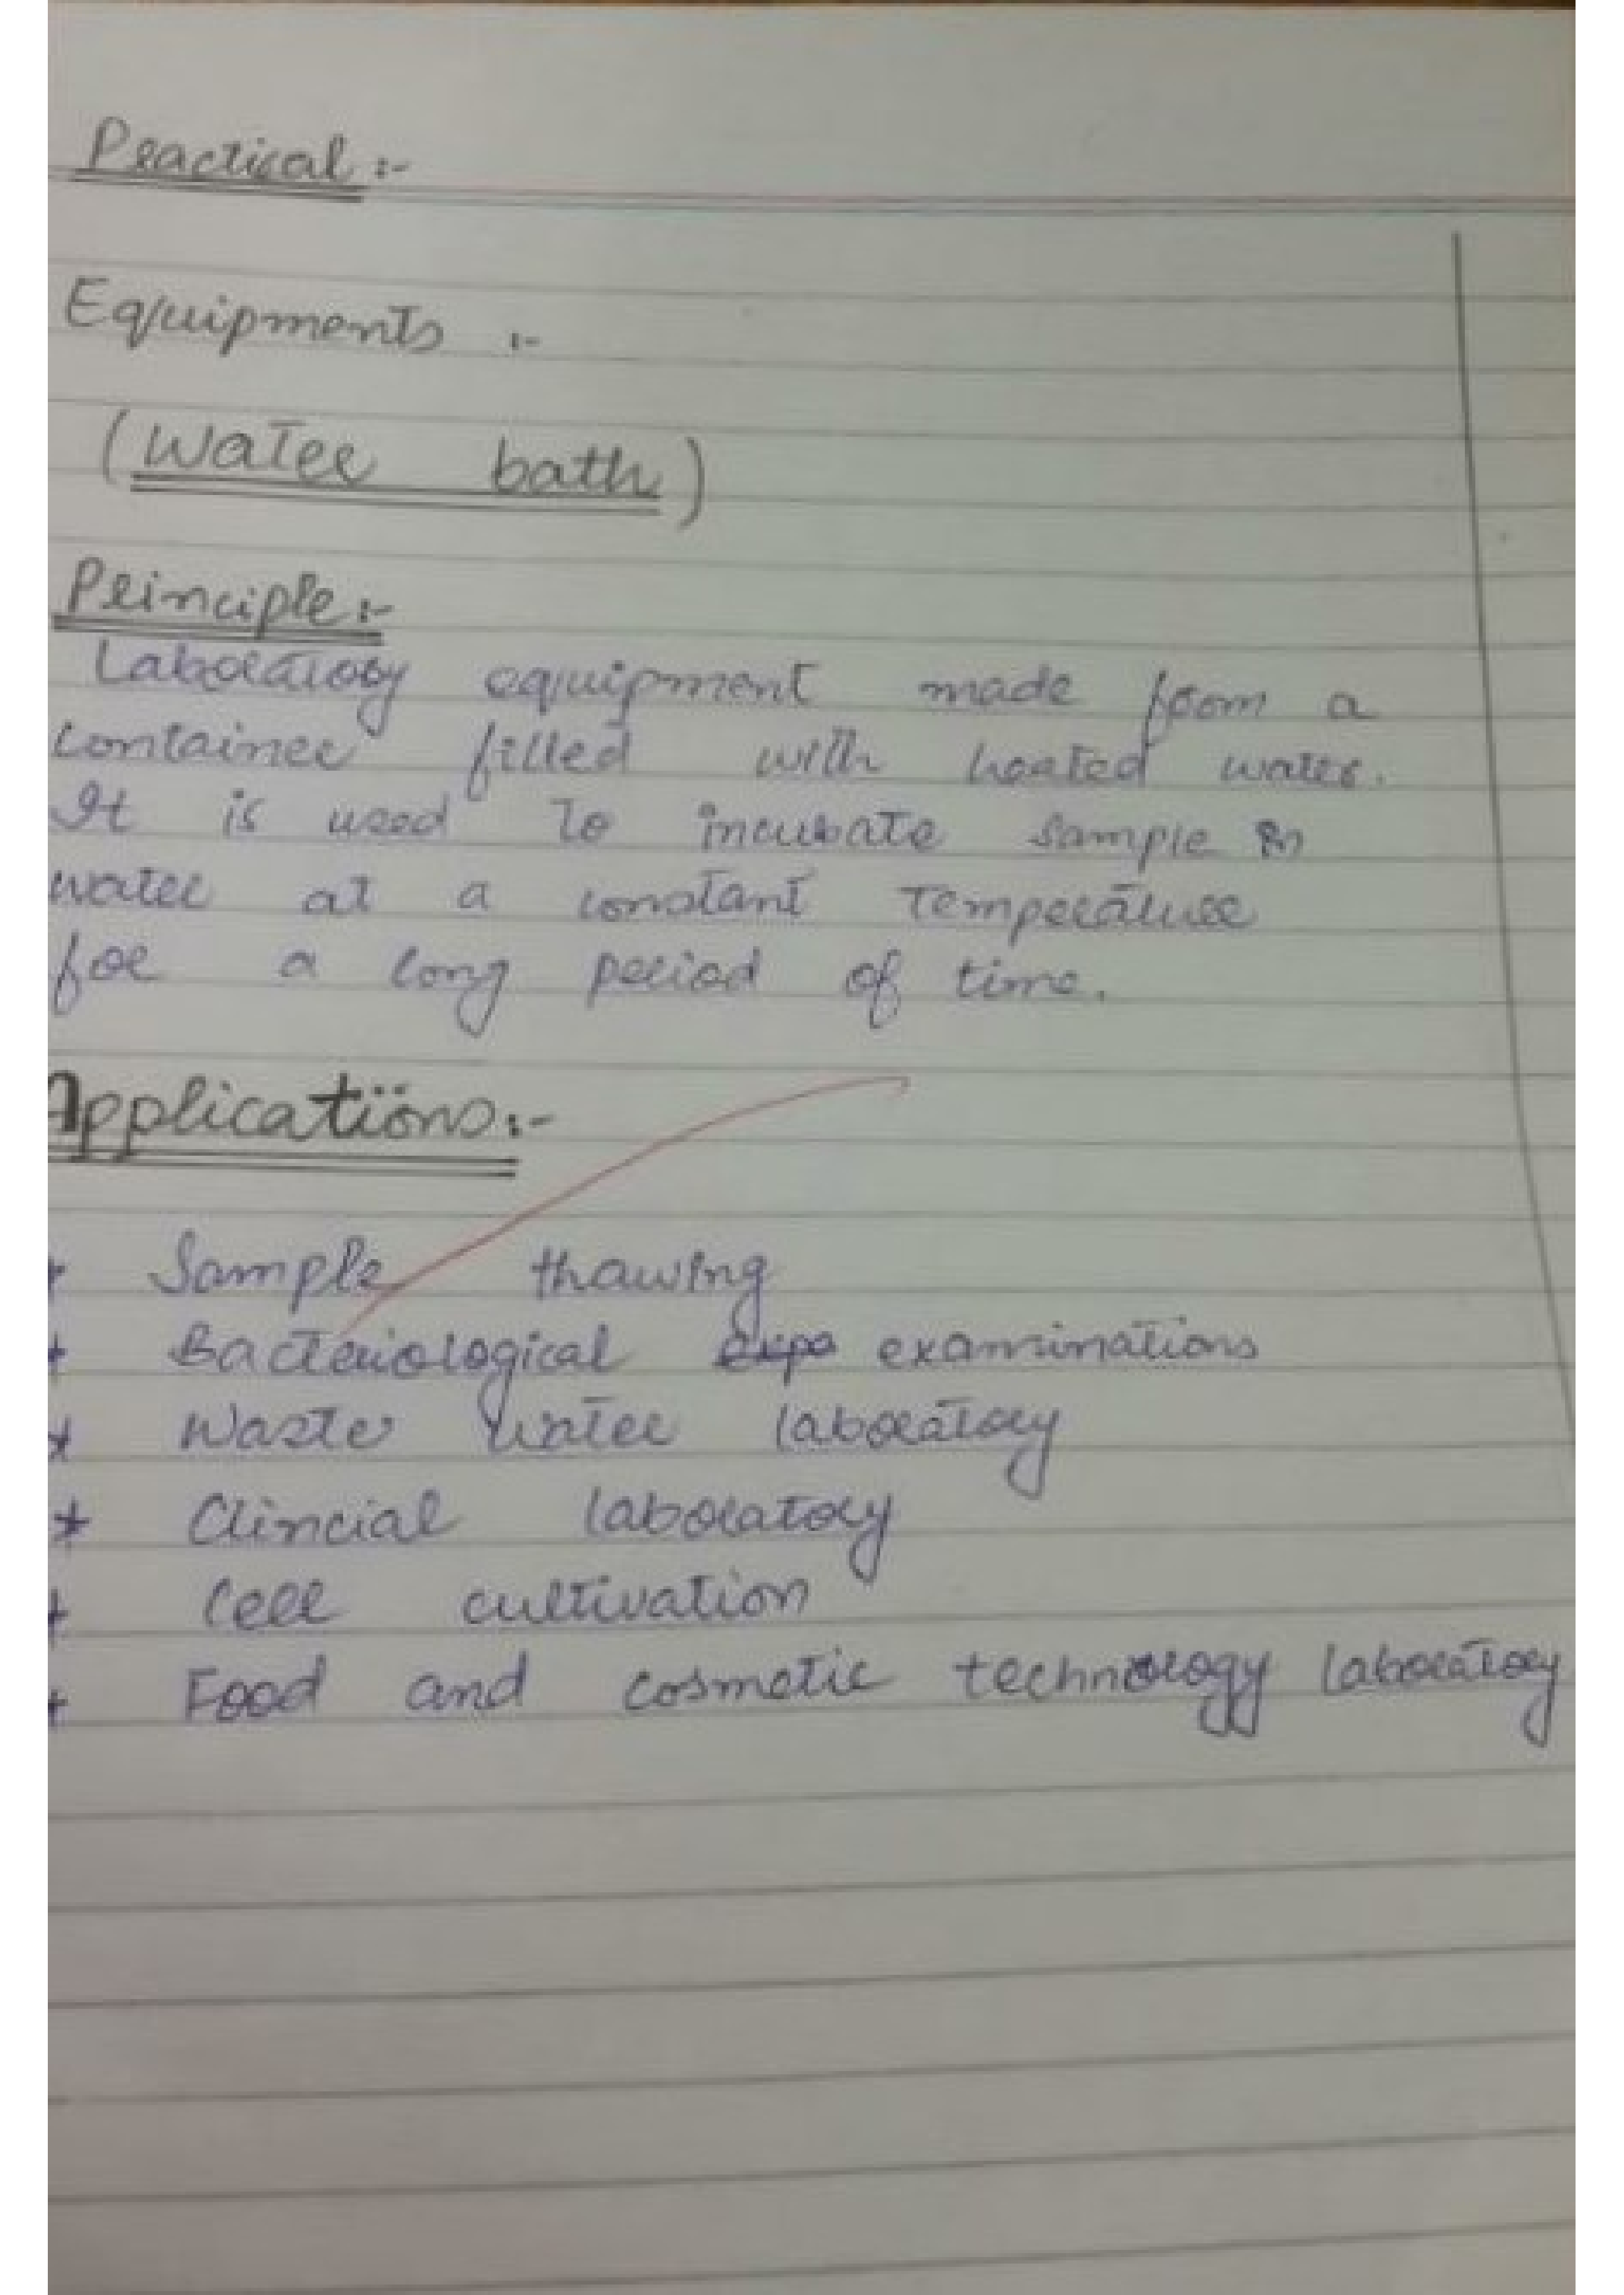 Practical :-
Equipments :-
(Water bath)
Principle :-
Laboratory equipment made from a
container filled with heated water.
It is used to incubate sample in
water at a constant Temperature
for a long period of time.
Applications :-
* Sample thawing
* Bacteriological expo examinations
* Waste water laboratory
* Clincial laboratory
* Cell cultivation
* Food and cosmetic technology laboratory